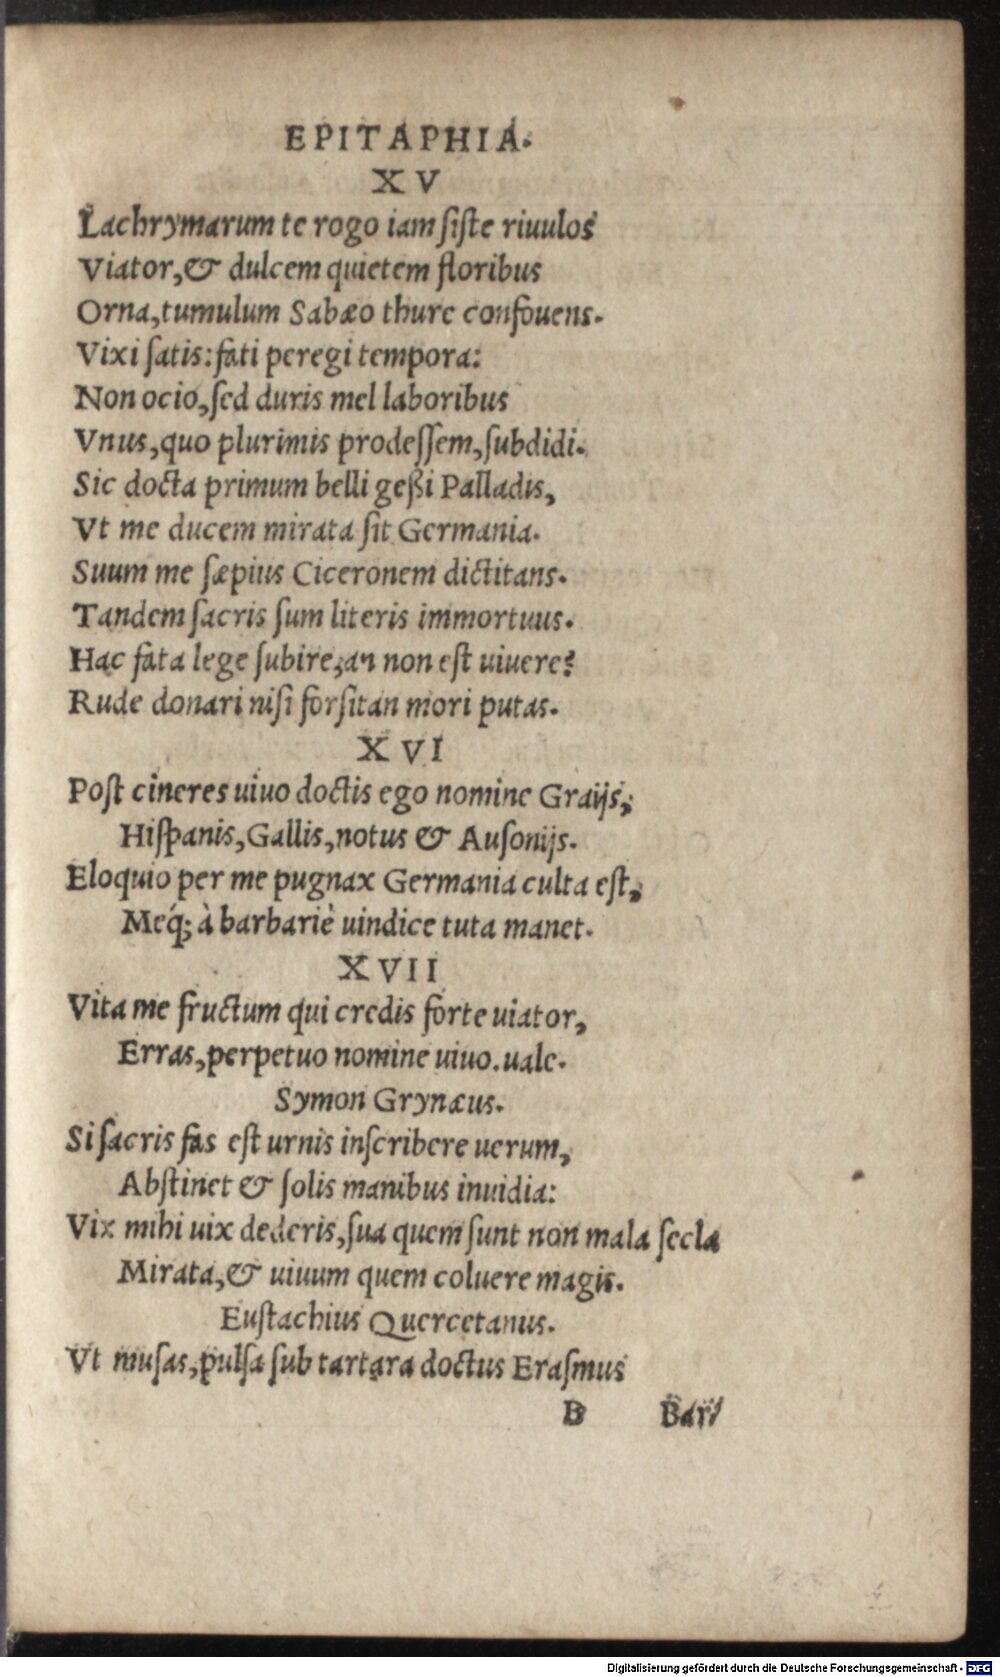 EPITAPHIA.
XV
Lachrymarum te rogo iam siste riuulos
Viator, & dulcem quietem floribus
Orna, tumulum Sabæo thure confouens.
Vixi satis: fati peregi tempora:
Non ocio, sed duris mel laboribus
Vnus, quo plurimis prodessem, subdidi.
Sic docta primum belli geßi Palladis,
Vt me ducem mirata sit Germania.
Suum me sæpius Ciceronem dictitans.
Tandem sacris sum literis immortuus.
Hac fata lege subire, an non est uiuere?
Rude donari nisi forsitan mori putas.
XVI
Post cineres uiuo doctis ego nomine Graijs,
Hispanis, Gallis, notus & Ausonijs.
Eloquio per me pugnax Germania culta est,
Meq́; à barbariè uindice tuta manet.
XVII
Vita me fructum qui credis forte uiator,
Erras, perpetuo nomine uiuo. uale.
Symon Grynæus.
Si sacris fas est urnis inscribere uerum,
Abstinet & solis manibus inuidia:
Vix mihi uix dederis, sua quem sunt non mala secla
Mirata, & uiuum quem coluere magis.
Eustachius Quercetanus.
Vt musas, pulsa sub tartara doctus Erasmus
B Bar/
Digitalisierung gefördert durch die Deutsche Forschungsgemeinschaft - DFG